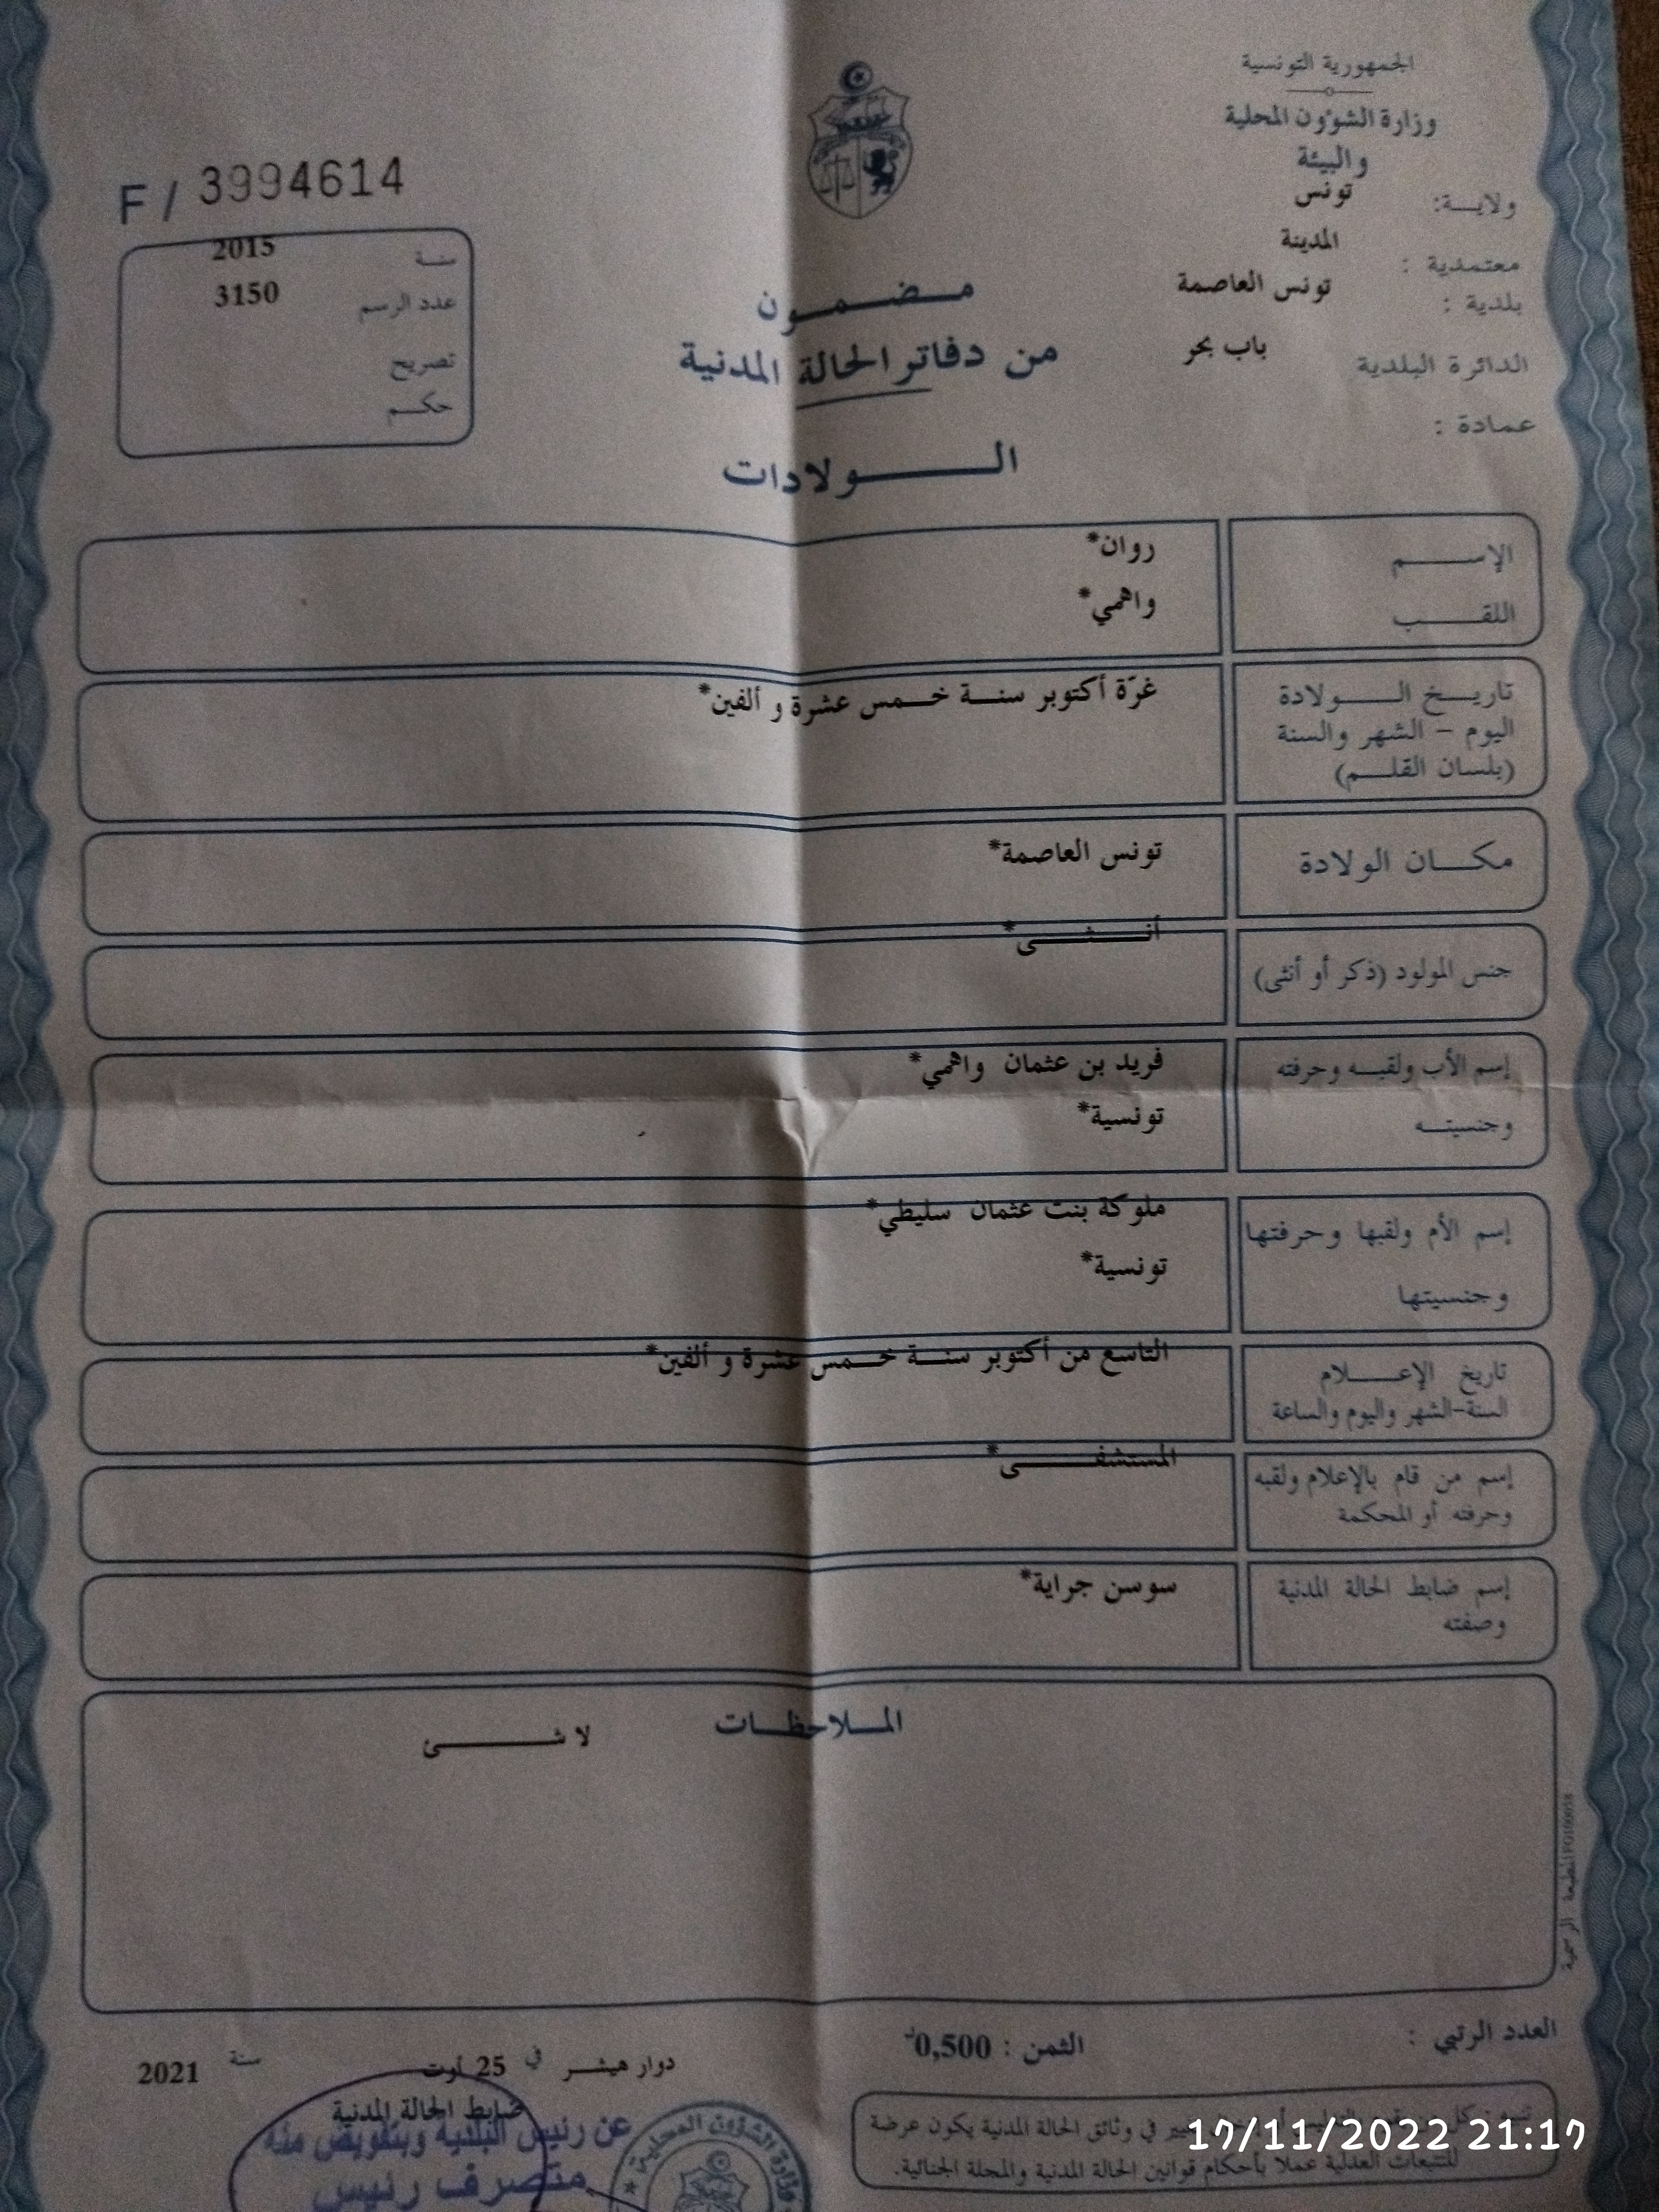 الجمهورية التونسية
وزارة الشؤون المحلية
والبيئة
ولايــة: تونس
معتمدية : المدينة
بلدية : تونس العاصمة
الدائرة البلدية باب بحر
عمادة :
F / 3994614
سنــة 2015
عدد الرسم 3150
تصريح
حكــم
مــضــمــون
من دفاتر الحالة المدنية
الــــولادات
الإســــم روان*
اللقــــب واهمي*
تاريــخ الــــولادة غرّة أكتوبر سنــة خــمس عشرة و ألفين*
اليوم – الشهر والسنة
(بلسان القلــم)
مكــان الولادة تونس العاصمة*
جنس المولود (ذكر أو أنثى) أنــــثــــى*
إسم الأب ولقبــه وحرفته فريد بن عثمان واهمي*
وجنسيتــه تونسية*
إسم الأم ولقبها وحرفتها ملوكة بنت عثمان سليطي*
وجنسيتها تونسية*
تاريخ الإعــــلام التاسع من أكتوبر سنــة خــمس عشرة و ألفين*
السنة-الشهر واليوم والساعة
إسم من قام بالإعلام ولقبه المستشفــــى*
وحرفته أو المحكمة
إسم ضابط الحالة المدنية سوسن جراية*
وصفته
المــلاحظــات
لا شــــئ
المطبعة الرسمية
العدد الرتبي :
الثمن : 0,500د
دوار هيشــر في 25 أوت سنــة 2021
ضابط الحالة المدنية
عن رئيس البلدية وبتفويض منه
متصرف رئيس
وزارة الشؤون المحلية
في وثائق الحالة المدنية يكون عرضة
للتتبعات العدلية عملا بأحكام قوانين الحالة المدنية والمجلة الجنائية.
17/11/2022 21:17